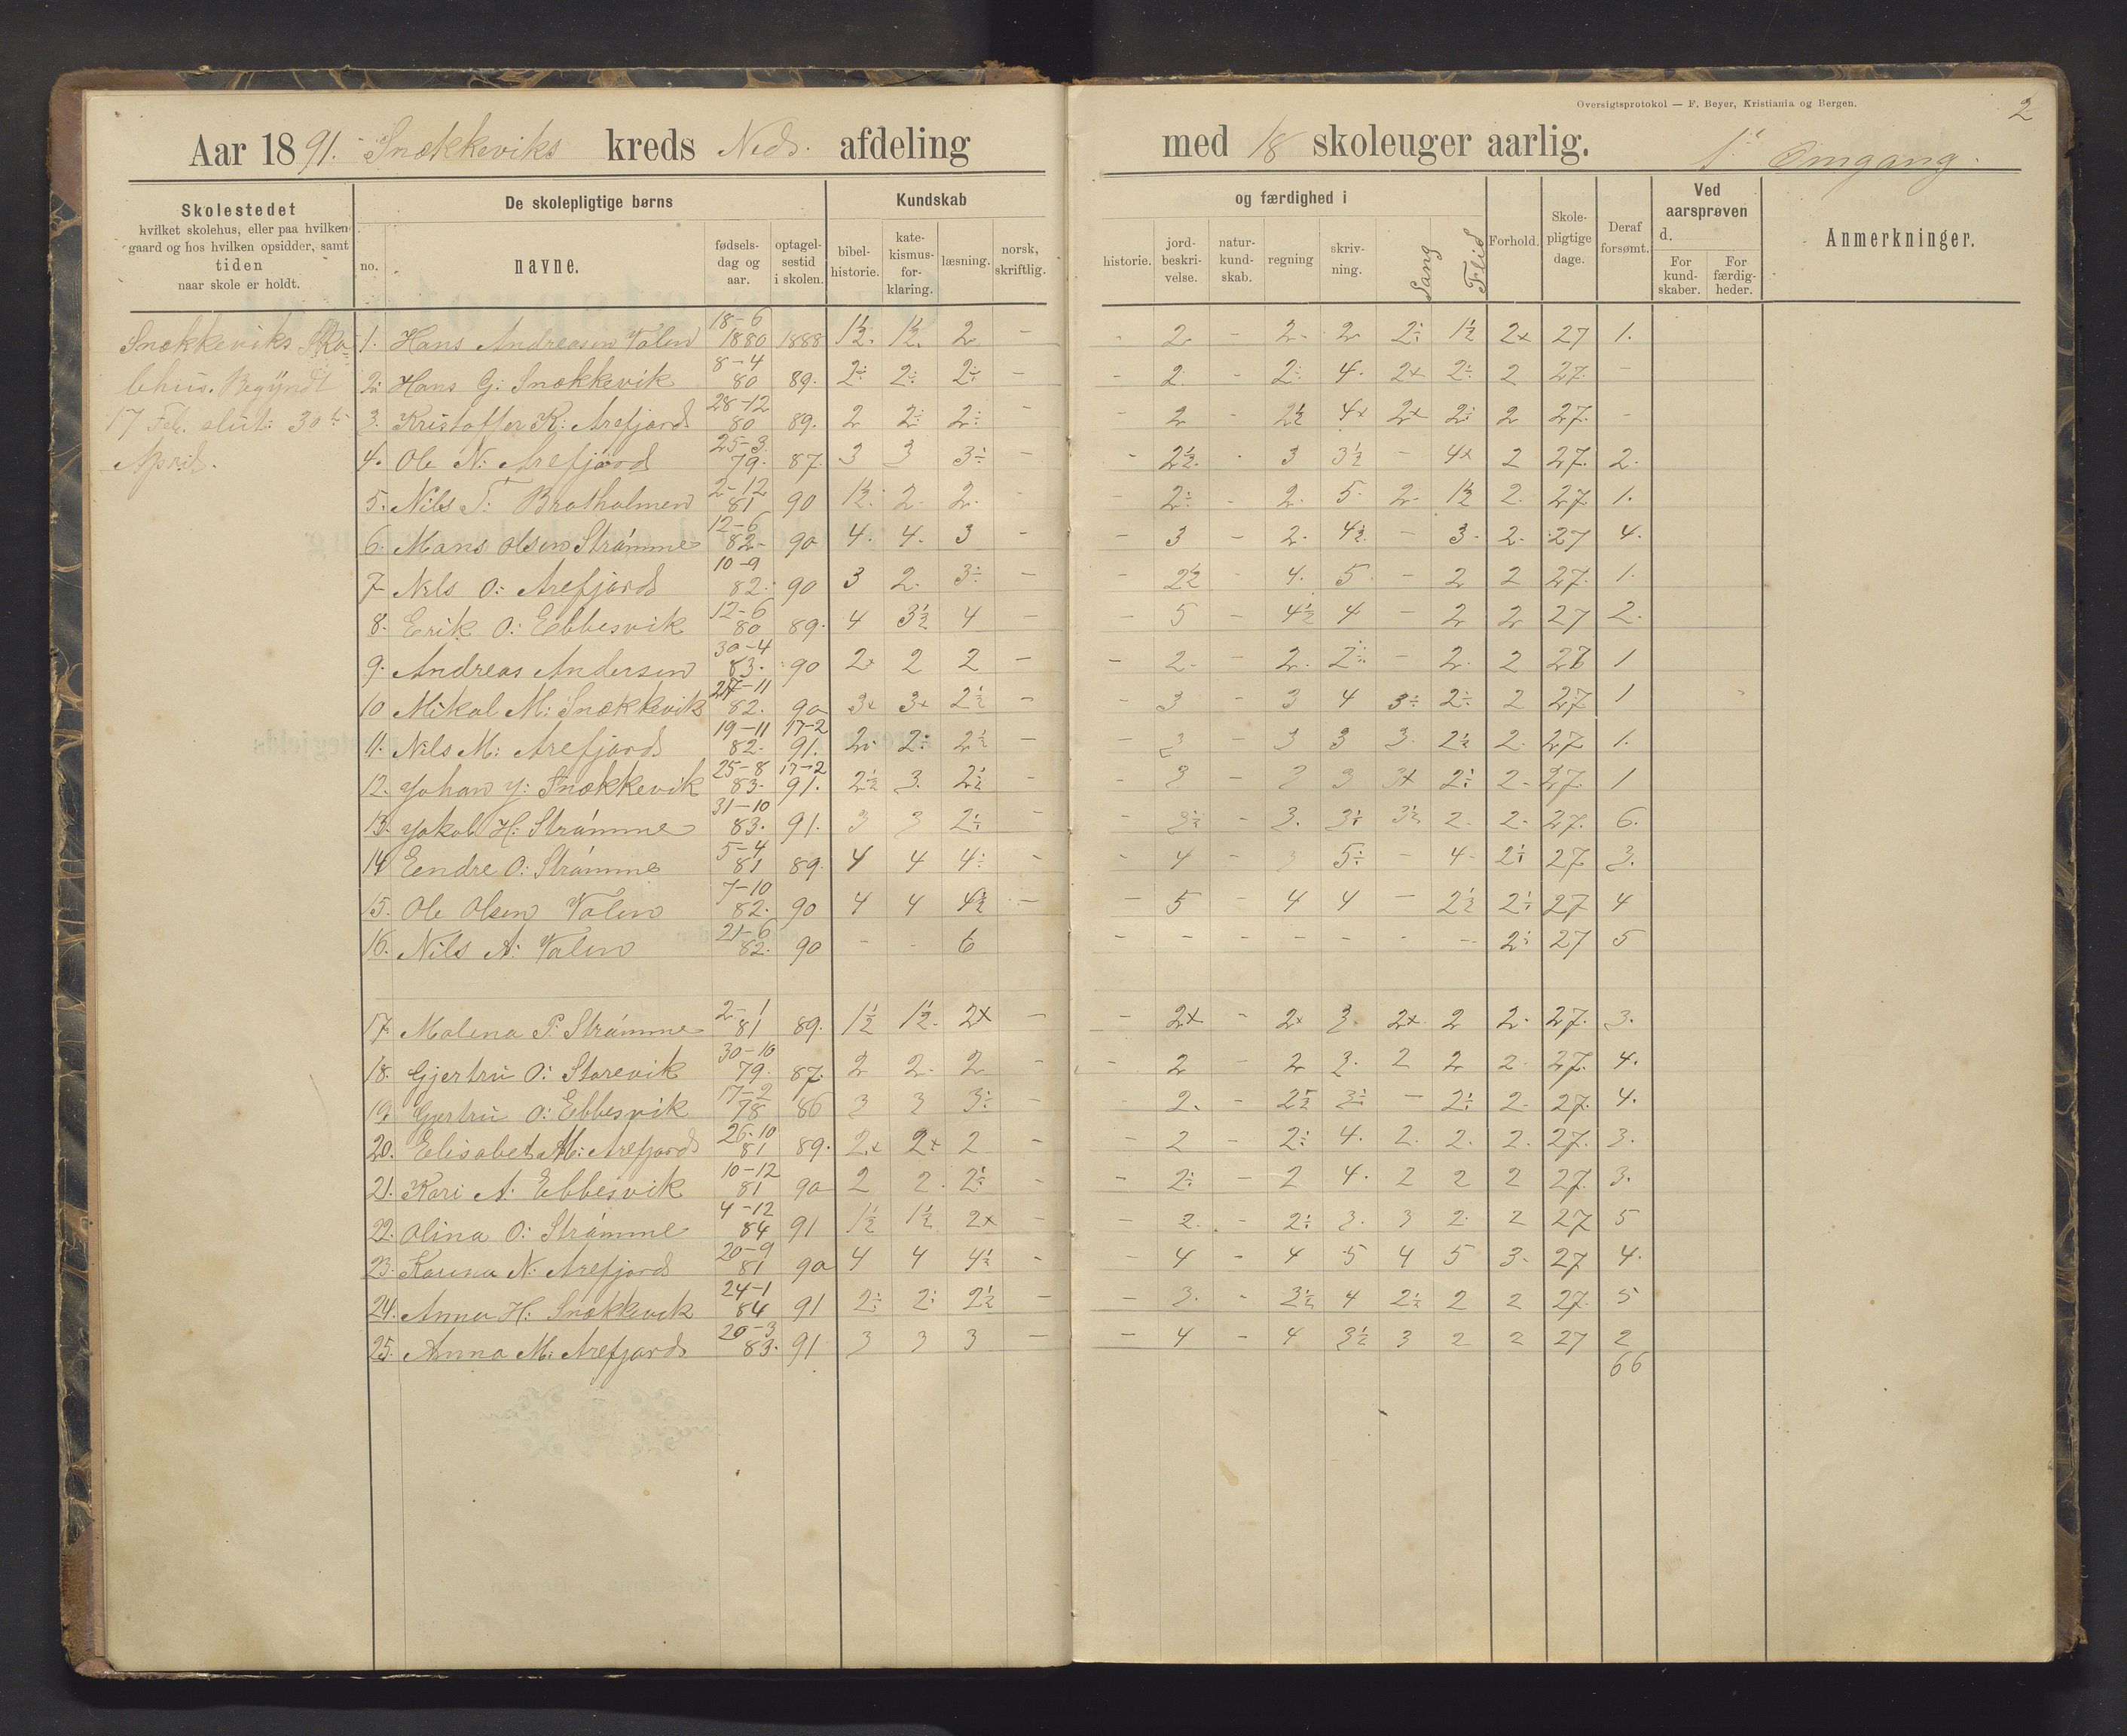 Oversigtsprotokol — F. Beyer, Kristiania og Bergen.
2
Aar 1891. Snækkeviks kreds Neds. afdeling med 18 skoleuger aarlig. 1ste Omgang.
Skolestedet
hvilket skolehus, eller paa hvilken
gaard og hos hvilken opsidder, samt
tiden
naar skole er holdt.
De skolepligtige børns
no.
navne.
fødsels-
dag og
aar.
optagel-
sestid
i skolen.
Kundskab
bibel-
historie.
kate-
kismus-
for-
klaring.
læsning.
norsk,
skriftlig.
og færdighed i
historie.
jord-
beskri-
velse.
natur-
kund-
skab.
regning
skriv-
ning.
Sang
Flid
Forhold.
Skole-
pligtige
dage.
Deraf
forsømt.
Ved
aarsprøven
d.
For
kund-
skaber.
For
færdig-
heder.
Anmerkninger.
Snækkeviks Sko-
lehus. Begyndt
17 Feb. slut: 30te
April.
1. Hans Andreasen Valen 18-6 1880 1888 1½. 1½. 2 - - 2 - 2- 2 2÷ 1½ 2x 27 1.
2. Hans G: Snækkevik 8-4 80 89. 2÷ 2÷ 2÷ - - 2. - 2÷ 4. 2x 2÷ 2 27. -
3. Kristoffer K: Arefjord 28-12 80 89. 2 2÷ 2÷ - - 2 - 2½ 4x 2x 2÷ 2 27. -
4. Ole N: Arefjord 25-3 79. 87. 3 3 3÷ - - 2½ - 3 3½ - 4x 2 27. 2.
5. Nils T: Bratholmen 2-12 81 90 1½. 2. 2. - - 2÷ - 2. 5. 2. 1½ 2. 27. 1.
6. Mons Olsen Strømme 12-6 82- 90 4. 4. 3 - - 3 - 2. 4½ - 3. 2. 27 4.
7 Nils O: Arefjord 10-9 82. 90 3 2. 3÷ - - 2½ - 4. 5. - 2 2 27. 1.
8. Erik O: Ebbesvik 12-6 80 89. 4 3½ 4 - - 5 - 4½ 4 - 2 2 27 2.
9. Andreas Andersen 30-4 83. 90 2x 2 2 - - 2- - 2. 2÷ - 2. 2 27 1
10 Mikal M: Snækkevik 27-11 82. 90 3x 3x 2½ - - 3 - 3 4 3÷ 2÷ 2 27 1
11. Nils M: Arefjord 19-11 82. 17-2 91. 2. 2÷ 2½ - - 3 - 3 3 3. 2½ 2. 27 1.
12. Johan J: Snækkevik 25-8 83. 17-2 91. 2½ 3. 2½ - - 3 - 3 3 3x 2÷ 2- 27. 1
13. Jakob H: Strømme 31-10 83. 91. 3 3 2÷ - - 3½ - 3. 3÷ 3½ 2- 2- 27. 6.
14 Eendre O: Strømme 5-4 81 89. 4 4 4÷ - - 4 - 3 5÷ - 4- 2÷ 27 3.
15. Ole Olsen Valen 7-10 82. 90 4 4 4½ - - 5 - 4 4 - 2½ 2÷ 27 4
16. Nils A: Valen 21-6 82. 90 - - 6 - - - - - - - 2÷ 27 5
17. Malena P: Strømme 2-1 81 89. 1½ 1½. 2x - - 2x - 2x 3. 2x 2 2- 27. 3.
18. Gjertru O: Storevik 30-10 79. 87. 2 2. 2 - - 2 - 2 3. 2 2 2- 27. 4.
19. Gjertru O: Ebbesvik 17-2 78 86 3 3 3÷ - - 2. - 2½ 3÷ - 2÷ 2- 27. 4.
20. Elisabet M: Arefjord 26-10 81 89. 2x 2x 2 - - 2 - 2÷ 4. 2. 2. 2. 27. 3.
21. Kari A: Ebbesvik 10-12 81 90 2 2. 2÷ - - 2÷ - 2 4. 2 2 2 27. 3.
22. Olina O: Strømme 4-12 84 91 1½ 1½ 2x - - 2. - 2÷ 3. 3 2. 2 27 5
23. Karina N: Arefjord 20-9 81 90 4 4 4½ - - 4 - 4 5 4 5 3- 27 4.
24. Anna H: Snækkevik 24-1 84 91 2÷ 2÷ 2½ - - 3. - 3½ 4 2½ 2 2 27. 5
25. Anna M: Arefjord 20-3 83. 91 3 3 3 - - 4 - 4 3½ 3 2 2 27 2
66